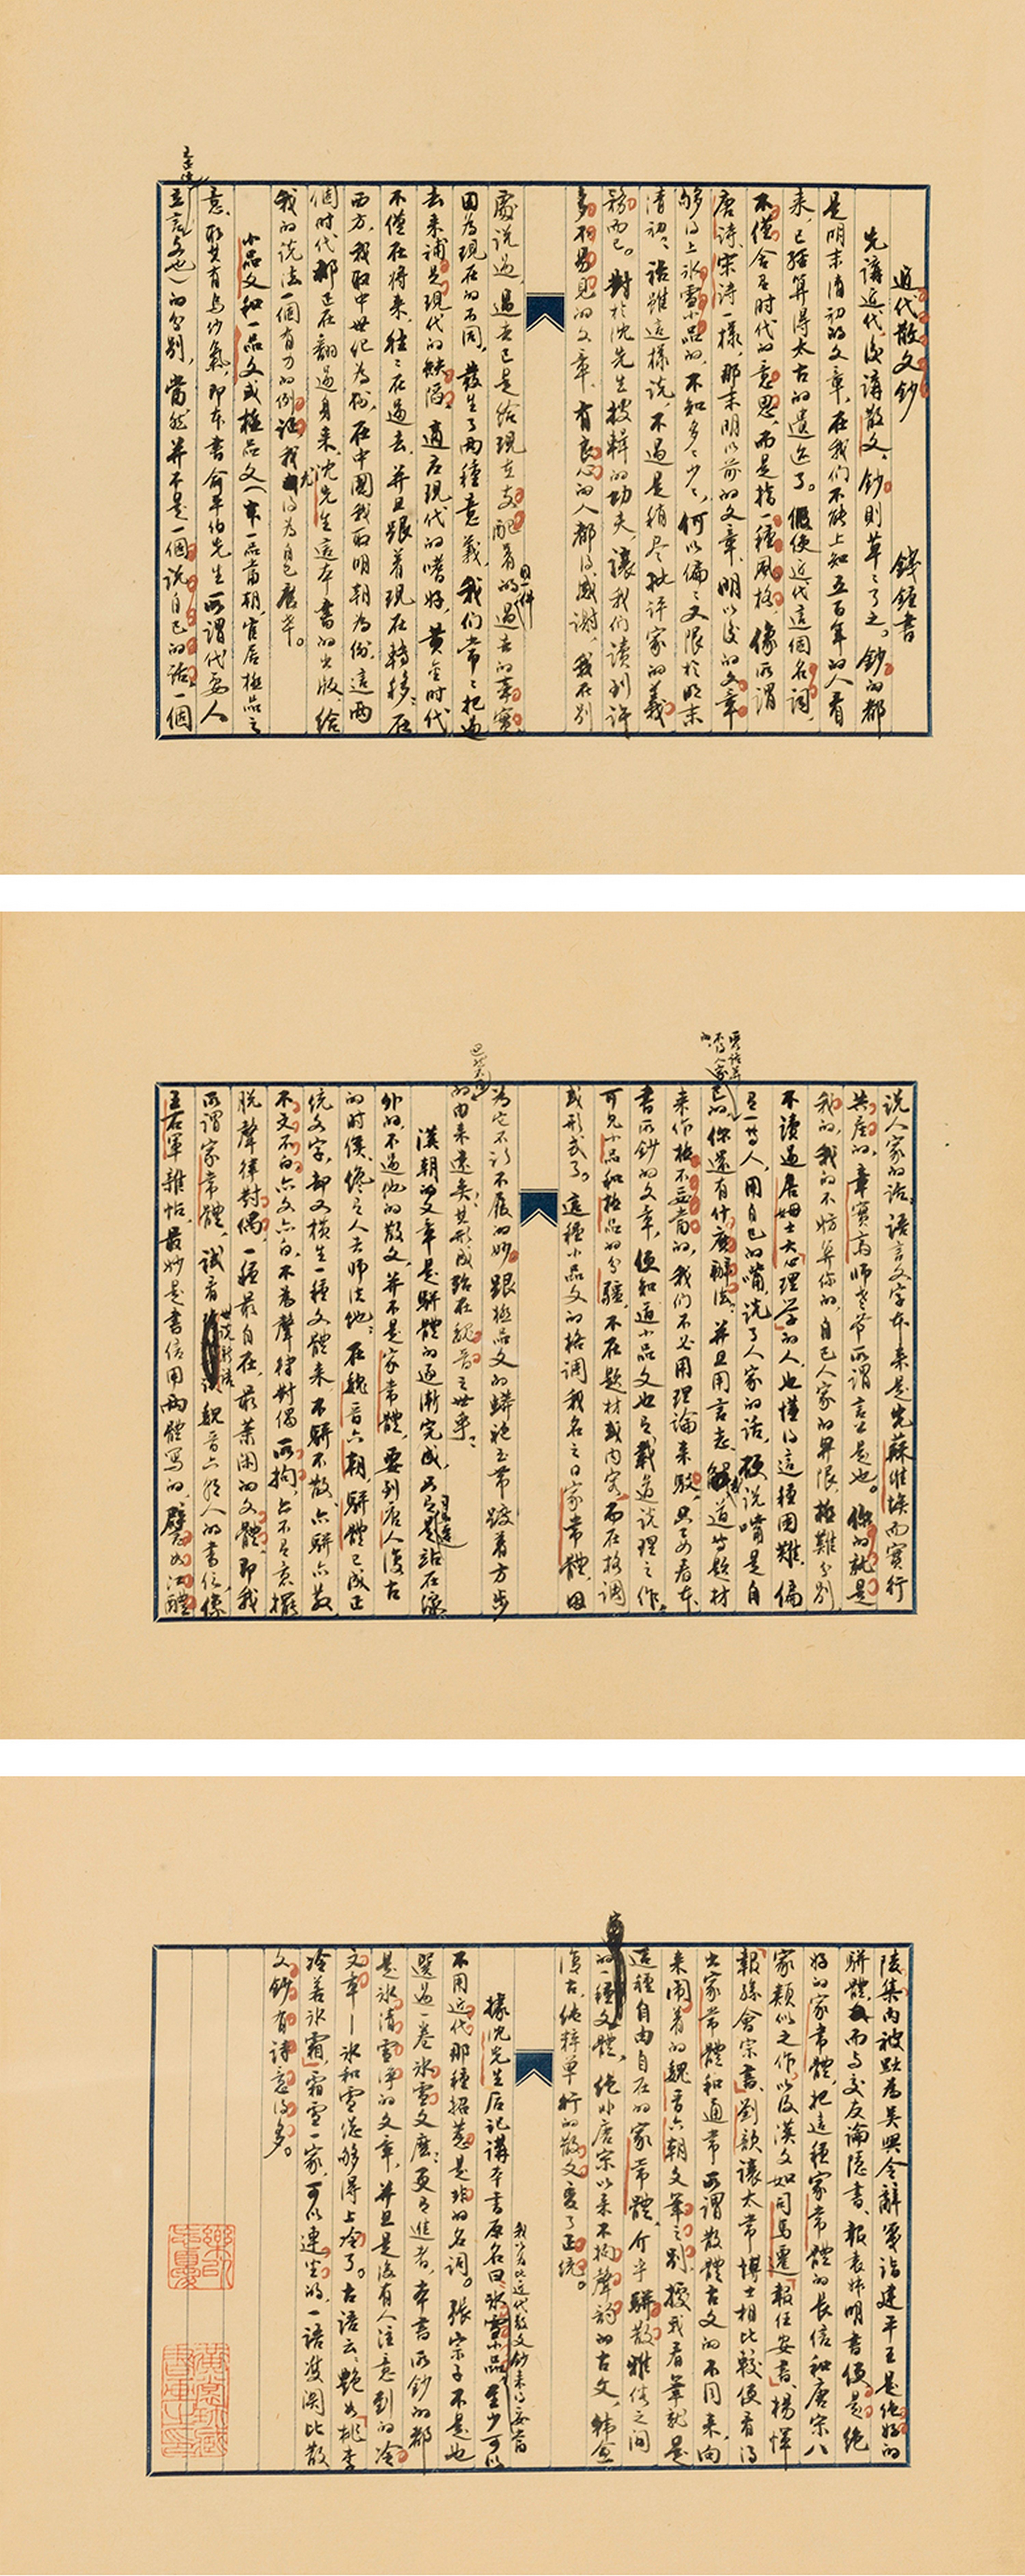 近代散文鈔
錢鍾書
先講近代,後講散文;鈔則草草了之。鈔的都
是明末清初的文章,在我們不能上知五百年的人看
来,已經算得太古的遺迹了。假使近代這個名詞,
不僅含有时代的意思,而是指一種風格,像所謂
唐詩、宋詩一樣,那末明以前的文章,明以後的文章
够得上冰雪小品的,不知多多少少,何以偏偏又限於明末
清初?話雖這樣說,不過是稍尽批評家的義
務而已。對於沈先生搜輯的功夫,讓我们讀到許
多不易見的文章,有良心的人都得感謝。我在別
處說過,過去已是给現在支配着的,同一件過去的事實,
因為現在的不同,發生了兩種意義。我们常常把過
去来補足現代的缺陷,適应現代的嗜好,黄金时代
不僅在將来,往往在過去,并且跟着現在轉移;在
西方,我取中世纪為例,在中國,我取明朝為例,這兩
個时代都正在翻過身来,沈先生這本書的出版,给
我的說法一個有力的例证,我尤得為自己慶幸。
小品文和一品文或極品文(本一品當朝,官居極品之
意,取其有烏纱氣,即本書俞平伯先生所謂代聖人
立言立文也)的分别,當然并不是一個說自己的话,一個
說人家的话;語言文字本来是先蘇維埃而實行
共産的,章實斋师老爷所謂言公是也。你的就是
我的,我的不妨算你的,自己人家的界限,極難分別
不讀過居姆士大心理学的人,也懂得這種困難,偏
有一等人,用自己的嘴,說了人家的话,硬說嘴是自
己的,你還有什麽辦法;并且用言志、載道等題材
来作標不妥當的,我们不必用理論来駁,只要看本
書所鈔的文章,便知道小品文也有載道說理之作。
可見小品和極品的分疆,不在題材或内容,而在格調
或形式了。這種小品文的格調,我名之曰家常體,因
為它不衫不履的妙,跟極品文的蟒袍玉帶踱着方步
的由来遠矣!其形成殆在魏晉之世乎?
漢朝的文章是駢體的逐漸完成,只有站在線
外的,不過他的散文,并不是家常體,要到唐人復古
的时候,儳有人去师法他;在魏晉六朝,駢體已成正
統文字,却又横生一種文體来,不駢不散,亦駢亦散
不文不白,亦文亦白,不為聲律對偶所拘,亦不有意擺
脫聲律對偶,一種最自在,最萧闲的文體,即我
所謂家常體,試看世說新語,試看魏晉六朝人的書信,像
王右軍雜帖,最妙是書信用兩體寫的,譬如江醴
陵集内被黜為吴興令辭箋詣建平王是絶好的
駢體,而與交友論隱書、報袁叔明書便是絶
好的家常體,把這種家常體的長信和唐宋八
家類似之作,以及漢文如司馬遷報任安書、楊惲
報孫會宗書、劉歆讓太常博士相比較,便看得
出家常體和通常所謂散體古文的不同来,向
来闹着的魏晉六朝文筆之别,據我看筆就是
這種自由自在的家常體,介乎駢散雅俗之间
的一種文體,絶非唐宋以来不拘聲韵的古文,韩愈
復古,纯粹單行的散文变了正統。
據沈先生后記講本書原名曰冰雪小品,我以為比近代散文鈔来得妥當
至少可以
不用近代那種招惹是非的名詞。張宗子不是也
選過一卷冰雪文麽?更有進者,本書所鈔的都
是冰清雪净的文章,并且是沒有人注意到的冷
文章——冰和雪從够得上冷了。古語云:艷如桃李
冷若冰霜,霜雪一家,可以連坐的,一語双関比散
文鈔有詩意得多。